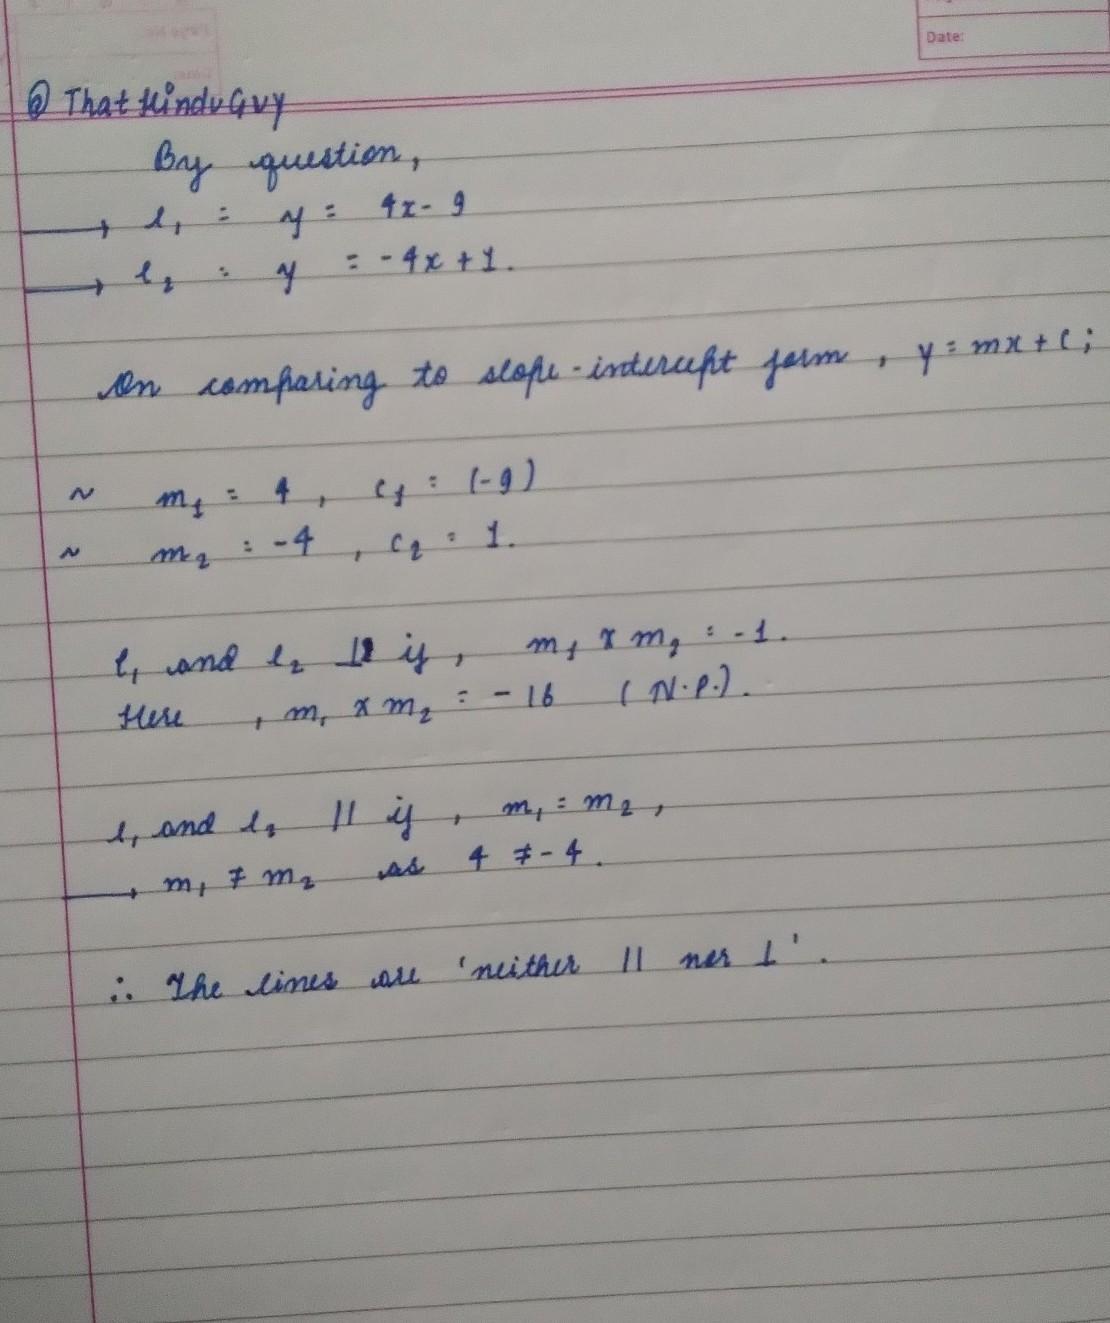 Date:
@ That Hindu Guy
By question,
→ l₁ = y = 4x - 9
→ l₂ = y = -4x + 1.
On comparing to slope-intercept form, y = mx + c;
~ m₁ = 4, c₁ = (-9)
~ m₂ = -4, c₂ = 1.
l₁ and l₂ ⊥ if, m₁ × m₂ = -1.
Here, m₁ × m₂ = -16 (N.P.).
l₁ and l₂ || if, m₁ = m₂,
→ m₁ ≠ m₂ as 4 ≠ -4.
∴ The lines are 'neither || nor ⊥'.